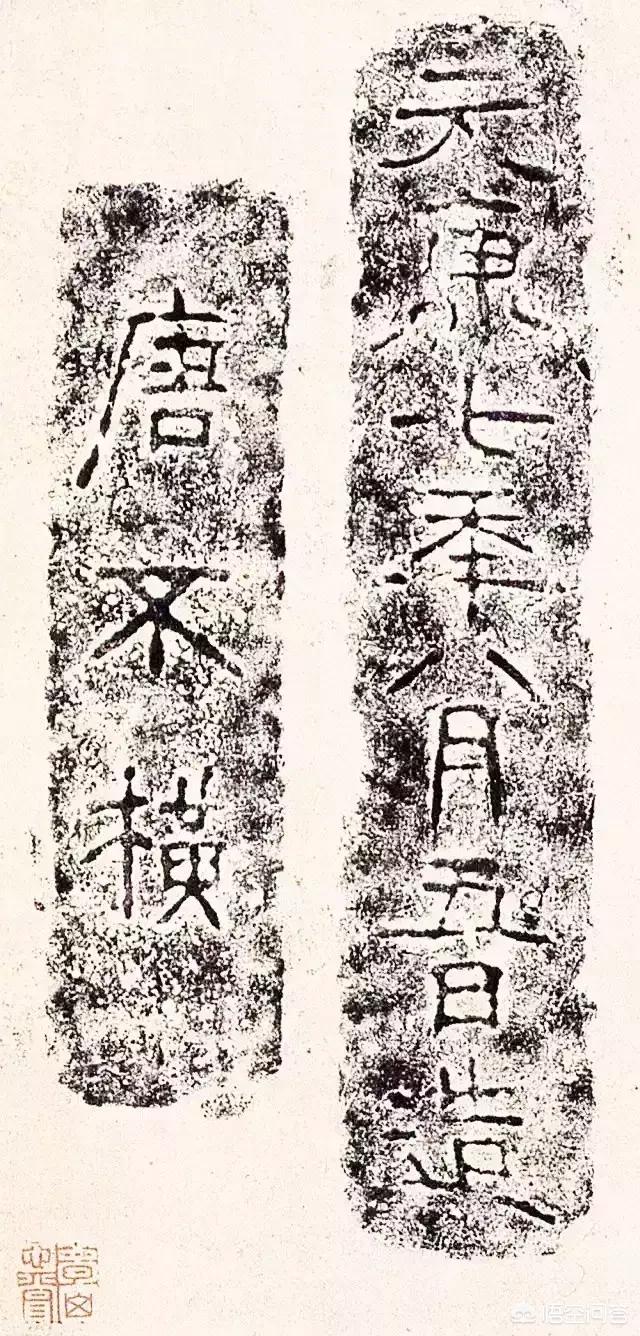 元康七年八月五日造
唐不横
悟空问答